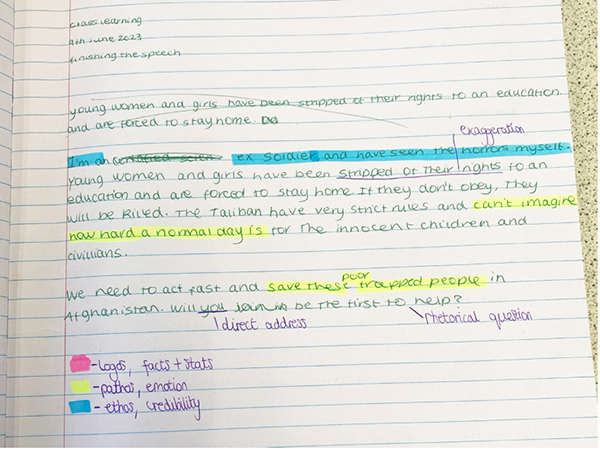 class learning
9th June 2023
finishing the speech
young women and girls have been stripped of their rights to an education
and are forced to stay home. Do
exaggeration
I'm an ex soldier and have seen the horrors myself.
Young women and girls have been stripped of their rights to an
education and are forced to stay home If they don't obey, They
will be killed. The Taliban have very strict rules and can't imagine
how hard a normal day is for The innocent children and
civillians.
poor
We need to act fast and save these trapped people in
Afghanistan. Will you be the first to help?
direct address
rhetorical question
-logos, facts + stats
-pathos, emotion
- ethos, credibility